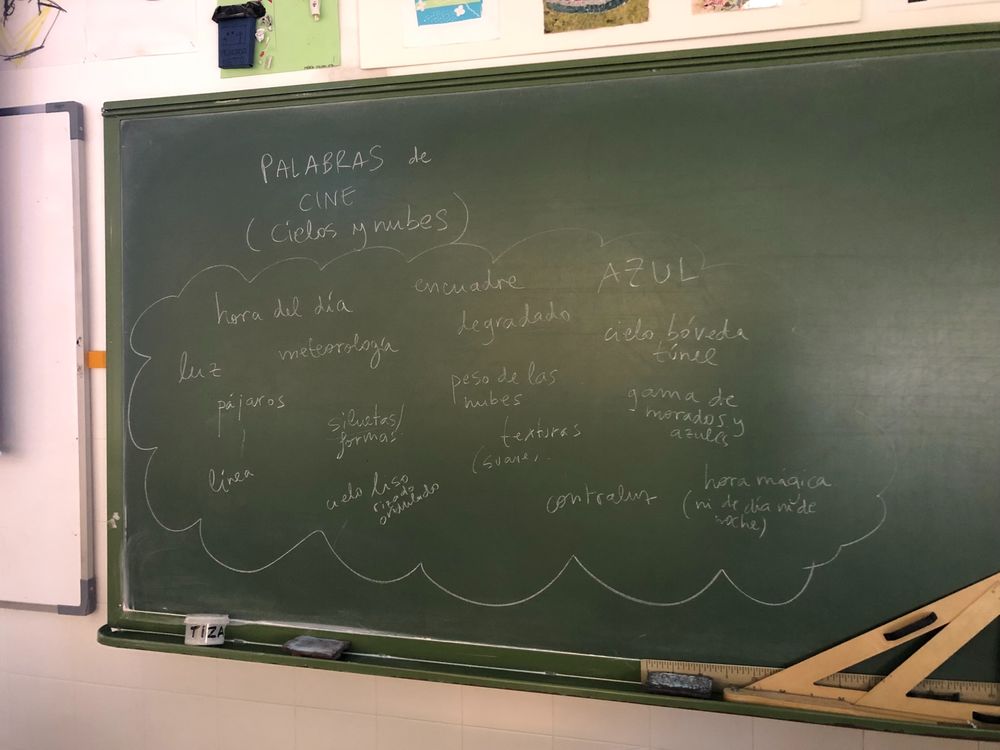 PALABRAS de
CINE
(cielos y nubes)
encuadre
AZUL
hora del día
degradado
cielo bóveda
túnel
meteorología
luz
peso de las
nubes
pájaros
gama de
morados y
azules
siluetas/
formas
texturas
(suave,
línea
cielo liso
rizado
ondulado
contraluz
hora mágica
(ni de día ni de
noche)
TIZA